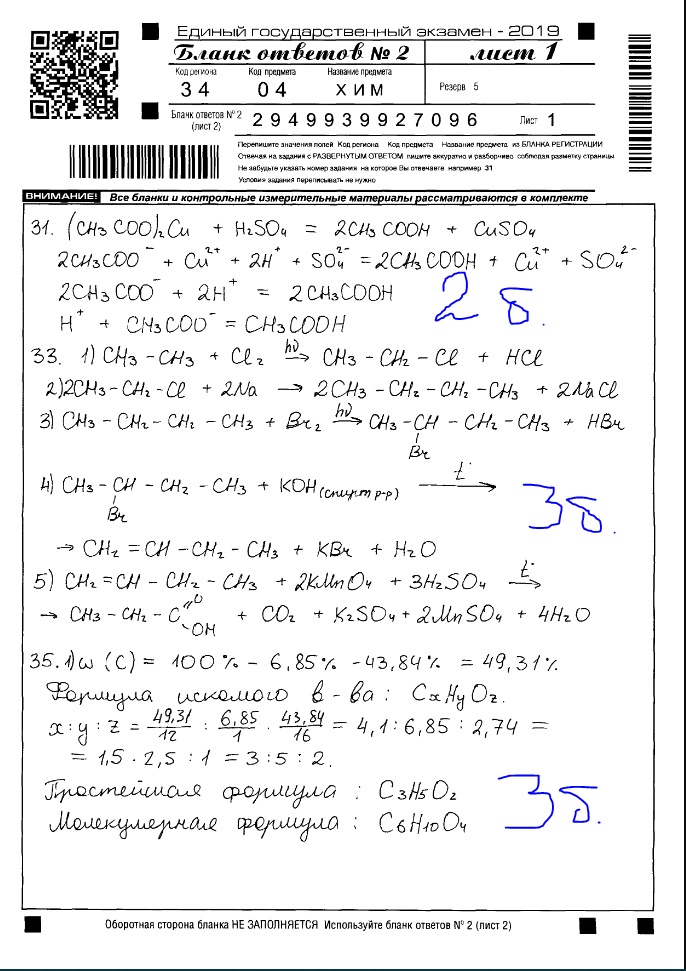 Единый государственный экзамен - 2019
Бланк ответов № 2 лист 1
Код региона Код предмета Название предмета
34 04 ХИМ Резерв 5
Бланк ответов № 2 (лист 2) 2949939927096 Лист 1
Перепишите значения полей Код региона Код предмета Название предмета из БЛАНКА РЕГИСТРАЦИИ
Отвечая на задания с РАЗВЕРНУТЫМ ОТВЕТОМ пишите аккуратно и разборчиво соблюдая разметку страницы
Не забудьте указать номер задания на которое Вы отвечаете например 31
Условия задания переписывать не нужно
ВНИМАНИЕ! Все бланки и контрольные измерительные материалы рассматриваются в комплекте
31. (CH₃COO)₂Cu + H₂SO₄ = 2CH₃COOH + CuSO₄
2CH₃COO⁻ + Cu²⁺ + 2H⁺ + SO₄²⁻ = 2CH₃COOH + Cu²⁺ + SO₄²⁻
2CH₃COO⁻ + 2H⁺ = 2CH₃COOH
2 б.
H⁺ + CH₃COO⁻ = CH₃COOH
33. 1) CH₃ - CH₃ + Cl₂ hν→ CH₃ - CH₂ - Cl + HCl
2) 2CH₃ - CH₂ - Cl + 2Na → 2CH₃ - CH₂ - CH₂ - CH₃ + 2NaCl
3) CH₃ - CH₂ - CH₂ - CH₃ + Br₂ hν→ CH₃ - CH - CH₂ - CH₃ + HBr
Br
4) CH₃ - CH - CH₂ - CH₃ + KOH (спирт р-р) t°→
Br
3 б.
→ CH₂ = CH - CH₂ - CH₃ + KBr + H₂O
5) CH₂ = CH - CH₂ - CH₃ + 2KMnO₄ + 3H₂SO₄ t°→
→ CH₃ - CH₂ - C =O - OH + CO₂ + K₂SO₄ + 2MnSO₄ + 4H₂O
35. 1) ω (C) = 100 % - 6,85 % - 43,84 % = 49,31 %
Формула искомого в-ва : CxHyOz.
x : y : z = 49,31/12 : 6,85/1 : 43,84/16 = 4,1 : 6,85 : 2,74 =
= 1,5 : 2,5 : 1 = 3 : 5 : 2.
Простейшая формула : C₃H₅O₂
Молекулярная формула : C₆H₁₀O₄
3 б.
Оборотная сторона бланка НЕ ЗАПОЛНЯЕТСЯ Используйте бланк ответов № 2 (лист 2)